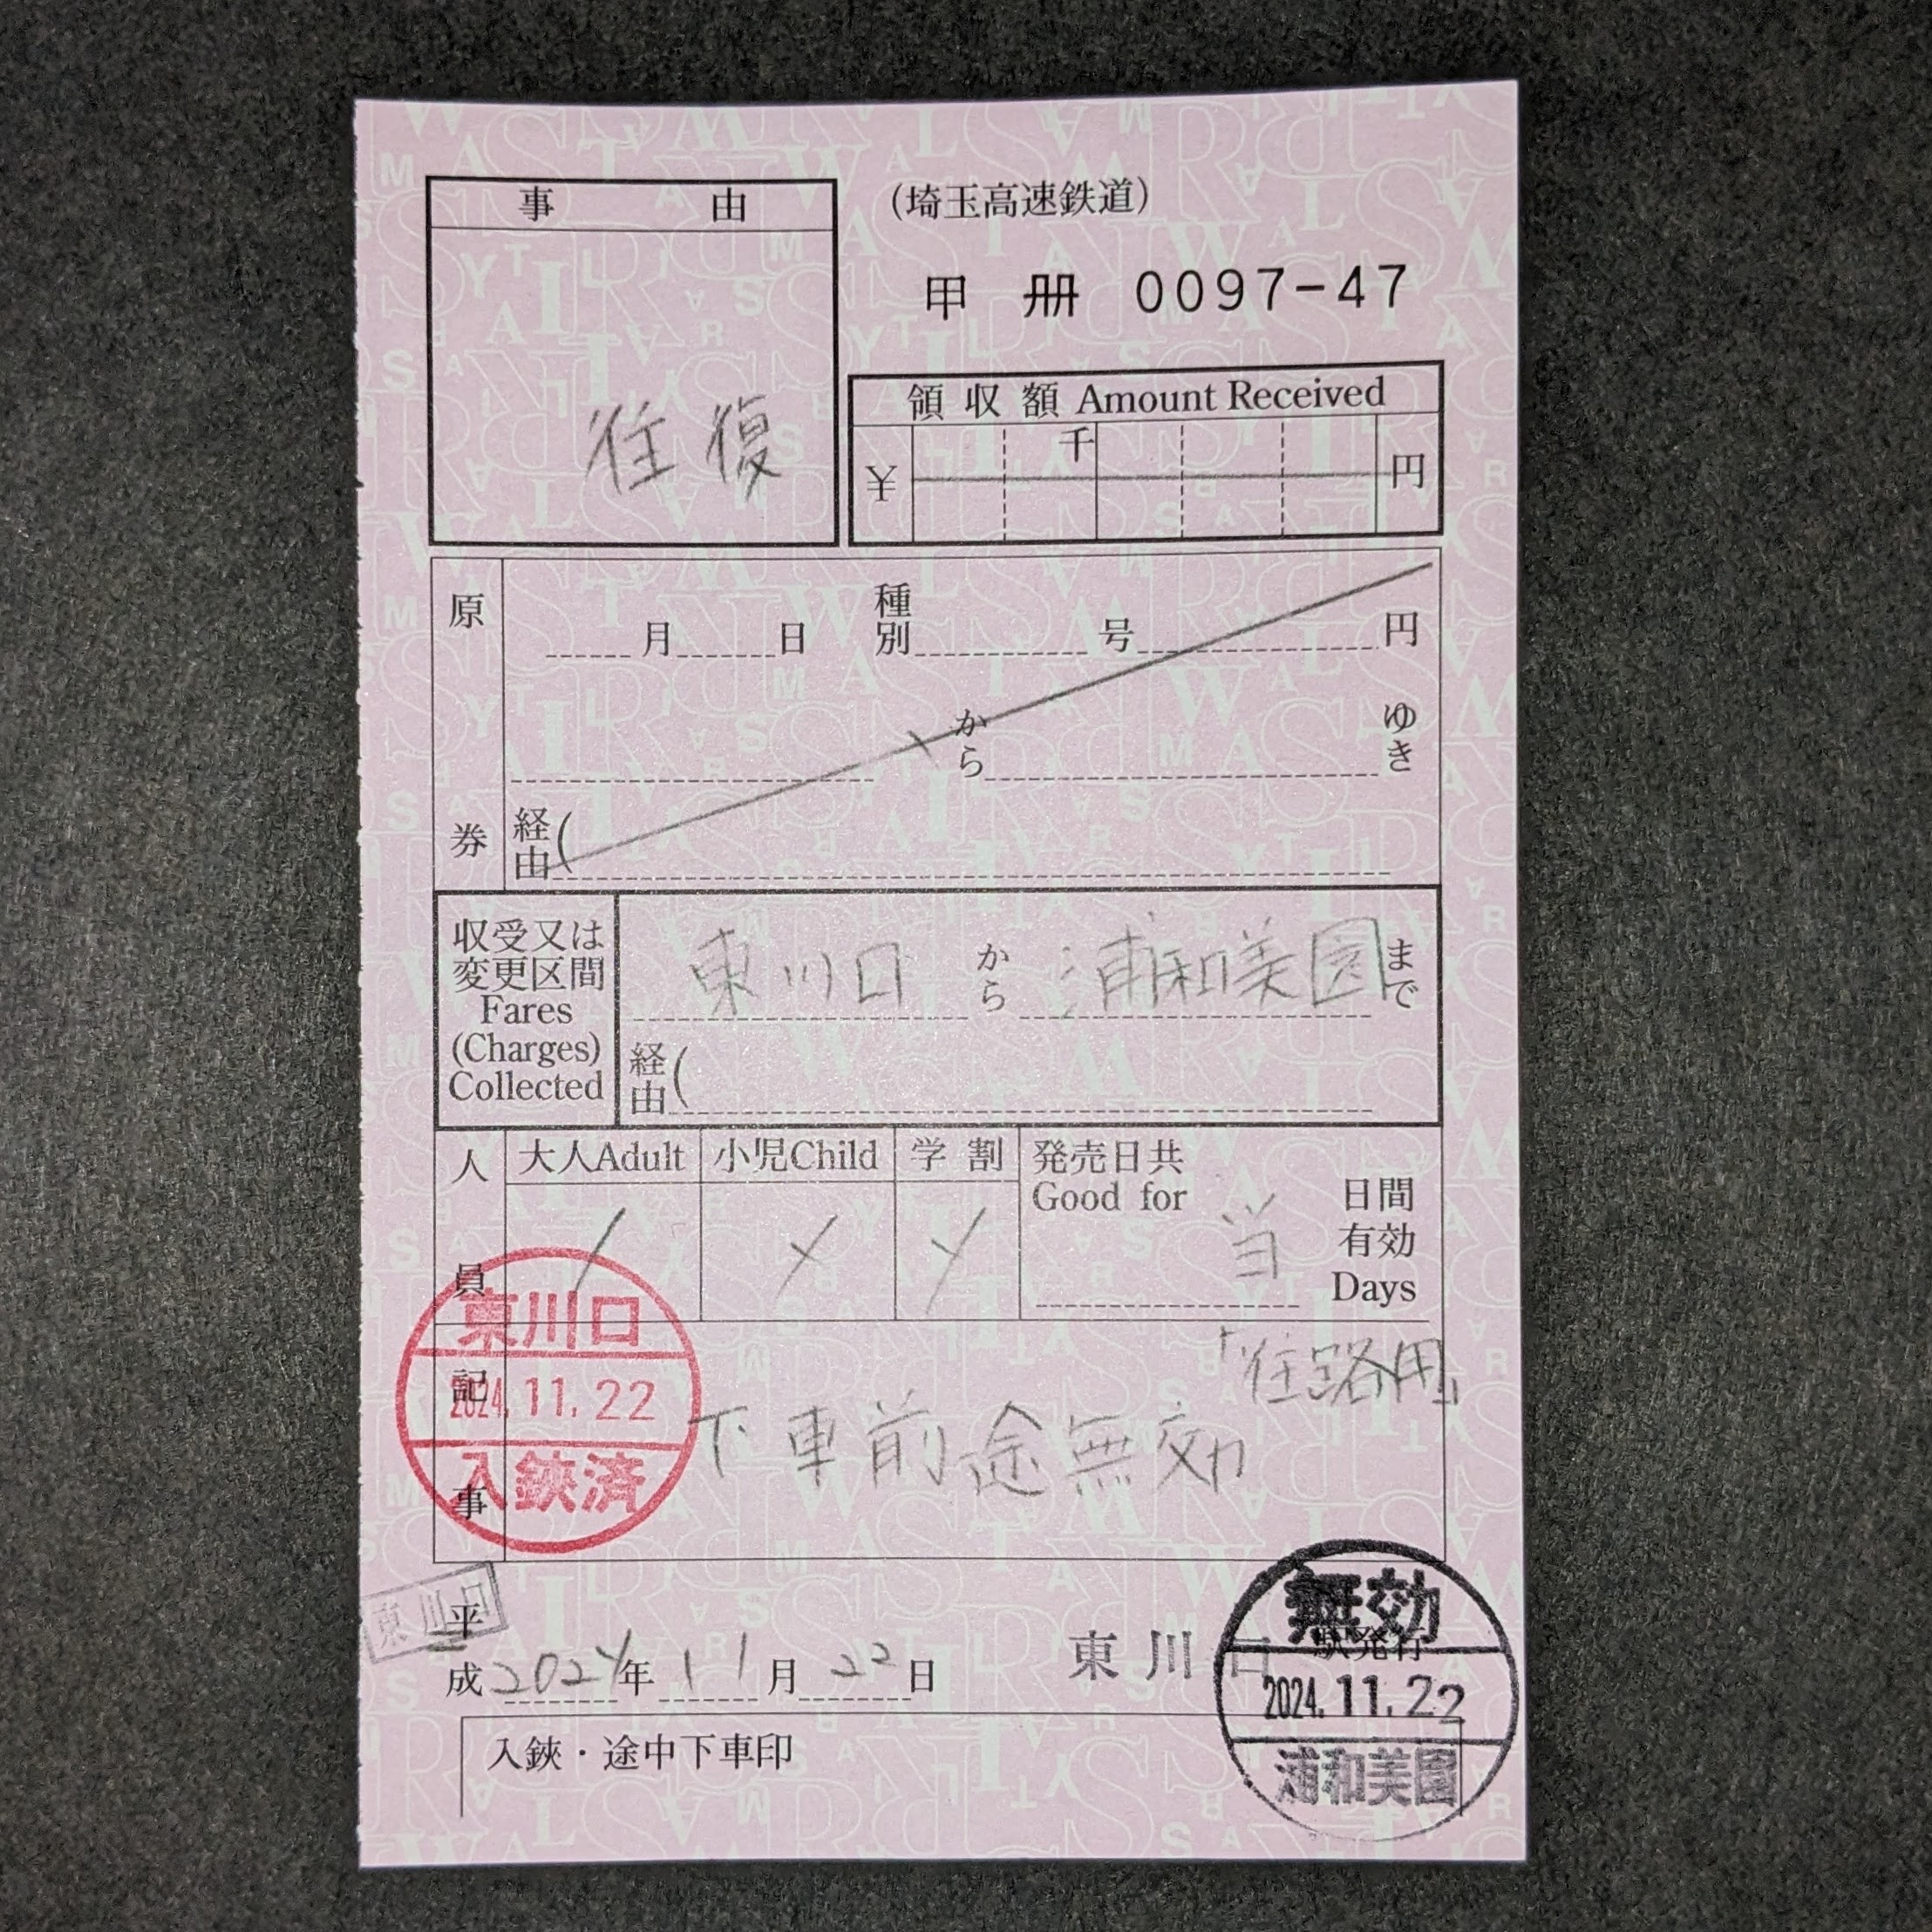 事 由
往復
(埼玉高速鉄道)
甲 冊 0097-47
領収額 Amount Received
千
¥ 円
原券
月 日 種別 号 円
から ゆき
経由(
収受又は
変更区間
Fares
(Charges)
Collected
東川口 から 浦和美園 まで
経由(
人員
大人Adult 小児Child 学割
発売日共
Good for 当 日間
有効
Days
記事
「往路用」
下車前途無効
東川口
2024.11.22
入鋏済
東川口
平成 2024年 11月 22日
東川口 駅発行
無効
2024.11.22
浦和美園
入鋏・途中下車印